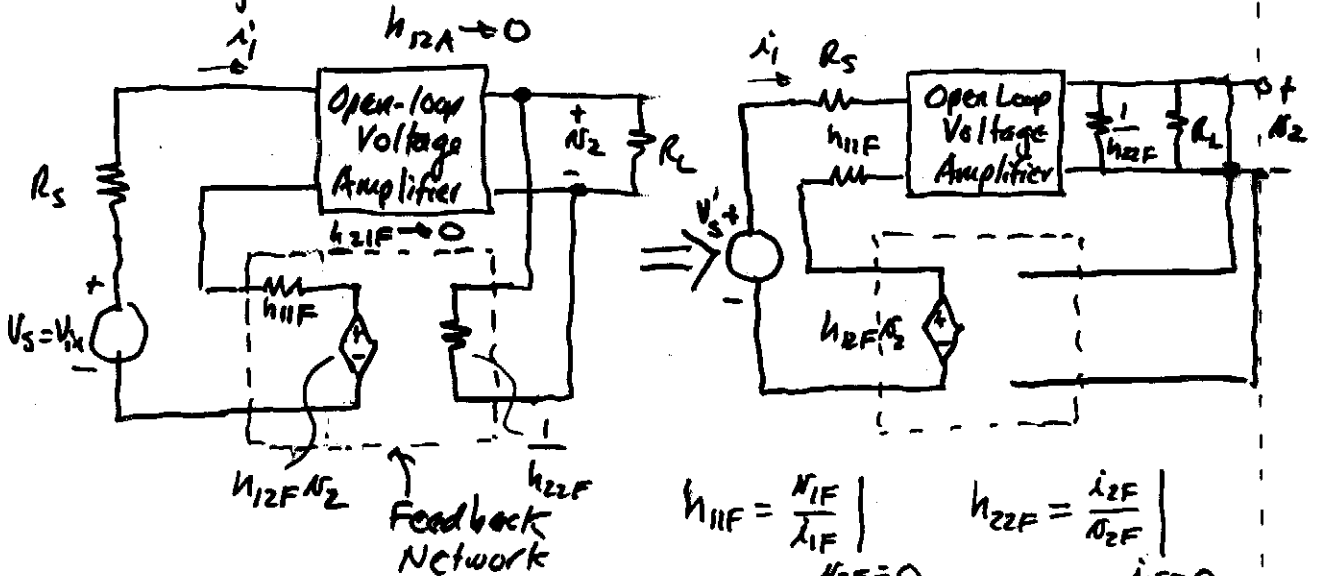 i₁'
h₁₂A → 0
Open-loop
Voltage
Amplifier
+
v₂
−
R_L
R_S
h₂₁F → 0
h₁₁F
+
V_S = V_ix
−
+
−
h₁₂F v₂
1
h₂₂F
Feedback
Network
⇒
i₁
R_S
h₁₁F
Open Loop
Voltage
Amplifier
1
h₂₂F
R_L
+
v₂
−
V_S' +
−
h₁₂F v₂
+
−
h₁₁F = v₁F / i₁F |
h₂₂F = i₂F / v₂F |